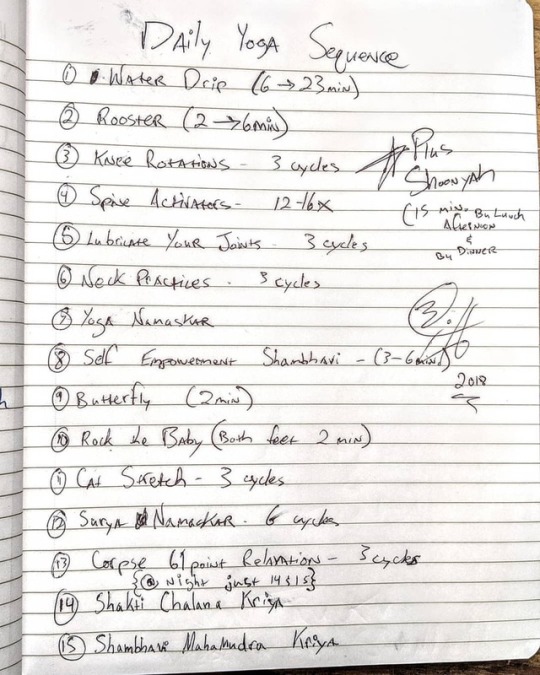 Daily Yoga Sequence
① Water Drip (6 → 23min)
② Rooster (2 → 6min)
③ Knee Rotations - 3 cycles
④ Spine Activators - 12-16x
⑤ Lubricate Your Joints - 3 cycles
⑥ Neck Practices - 3 cycles
⑦ Yoga Namaskar
⑧ Self Empowerment Shambhavi - (3-6min)
⑨ Butterfly (2min)
⑩ Rock the Baby (Both feet 2 min)
⑪ Cat Stretch - 3 cycles
⑫ Surya Namaskar - 6 cycles
⑬ Corpse 61 point Relaxation - 3 cycles
{@ Night just 14 & 15}
⑭ Shakti Chalana Kriya
⑮ Shambhavi Mahamudra Kriya
Plus
Shoonyah
(15 min. By Lunch
Afternion
&
By Dinner
2018